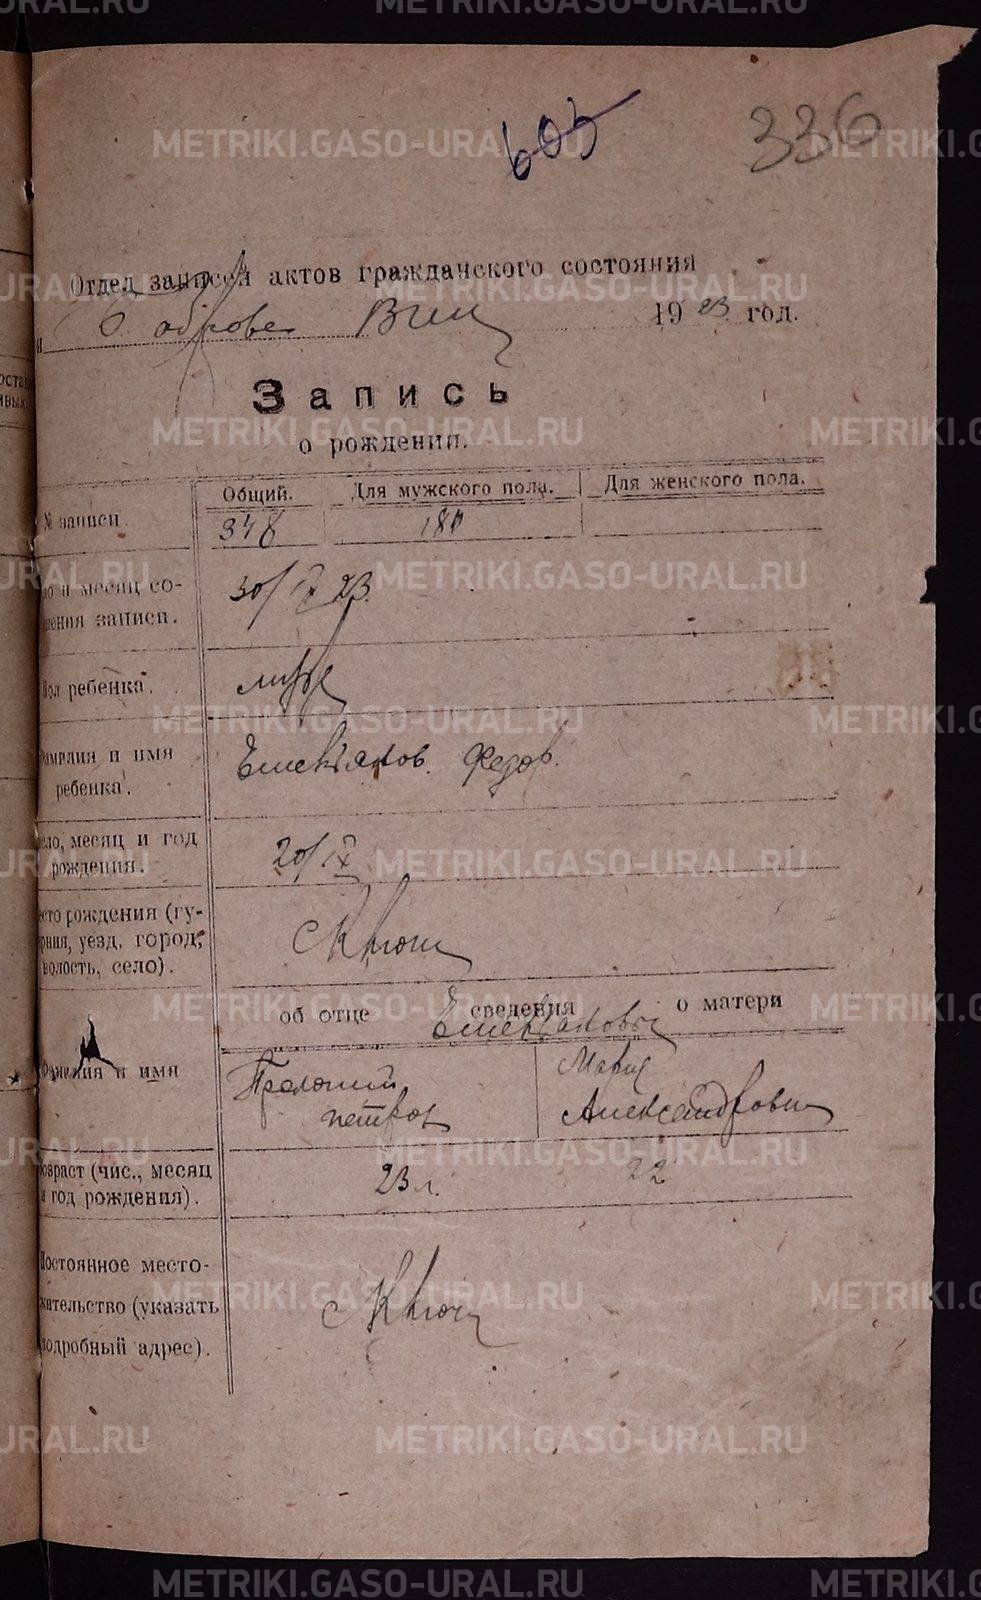 605
336
Отдел записей актов гражданского состояния
1923 год.
Запись
о рождении.
Общий. Для мужского пола. Для женского пола.
№ записи. 348 180
ло и месяц со-
шения записи. 30/IX 23.
Пол ребенка. муж
Фамилия и имя
ребенка. Федор.
ло, месяц и год
рождения. 20/IX
сто рождения (гу-
рния, уезд, город,
волость, село). с Ключи
об отце сведения о матери
Фамилия и имя
Мария
Петров Александровн
озраст (чис., месяц
и год рождения). 23 л. 22
Постоянное место-
жительство (указать
подробный адрес). с Ключи
METRIKI.GASO-URAL.RU